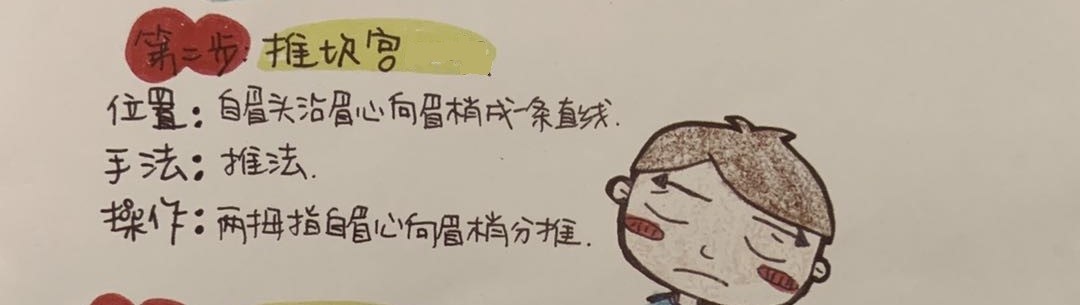 第二步:推坎宫
位置:自眉头沿眉心向眉梢成一条直线.
手法:推法.
操作:两拇指自眉心向眉梢分推.